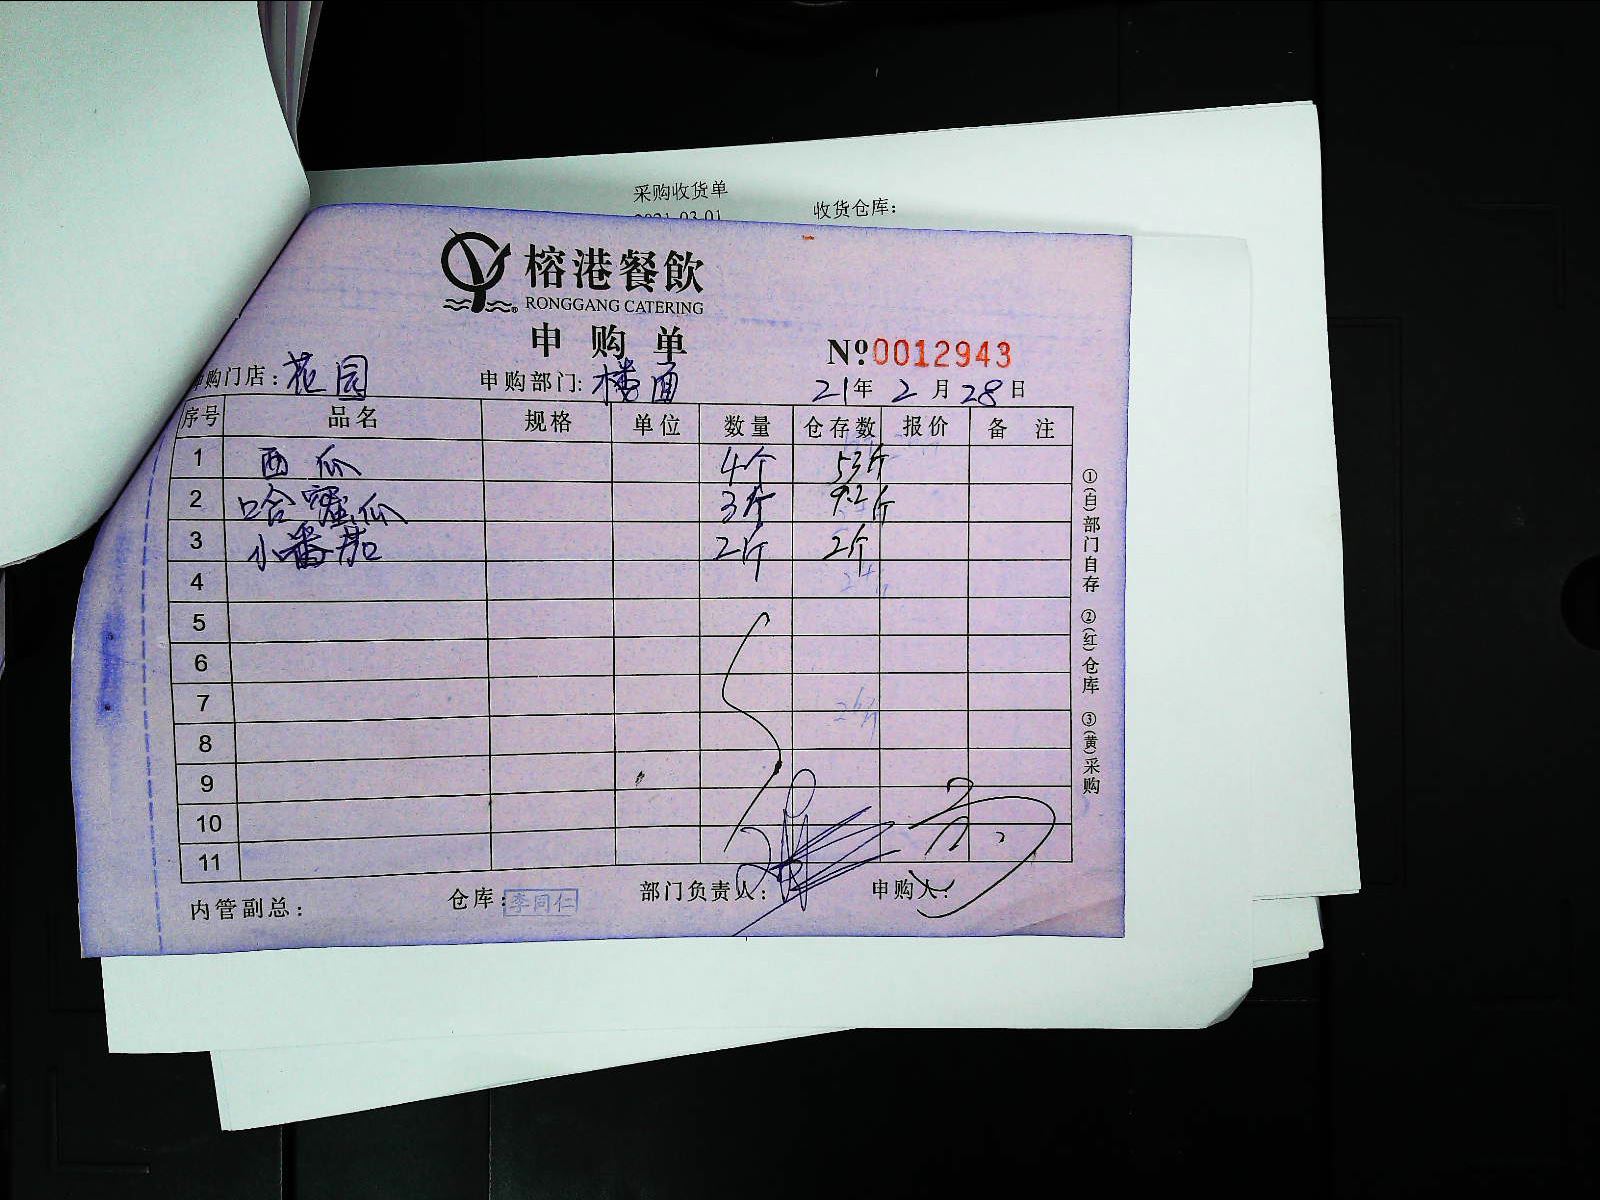 采购收货单
收货仓库：
2021-03-01
榕港餐飲
RONGGANG CATERING
申购单
№0012943
申购门店：花园 申购部门：楼面 21年2月28日
序号 品名 规格 单位 数量 仓存数 报价 备注
1 西瓜 4个 53斤
2 哈蜜瓜 3个 9.2斤
3 小番茄 2斤 2斤
4
5
6
7
8
9
10
11
①(白)部门自存 ②(红)仓库 ③(黄)采购
内管副总： 仓库：李同仁 部门负责人： 申购人：